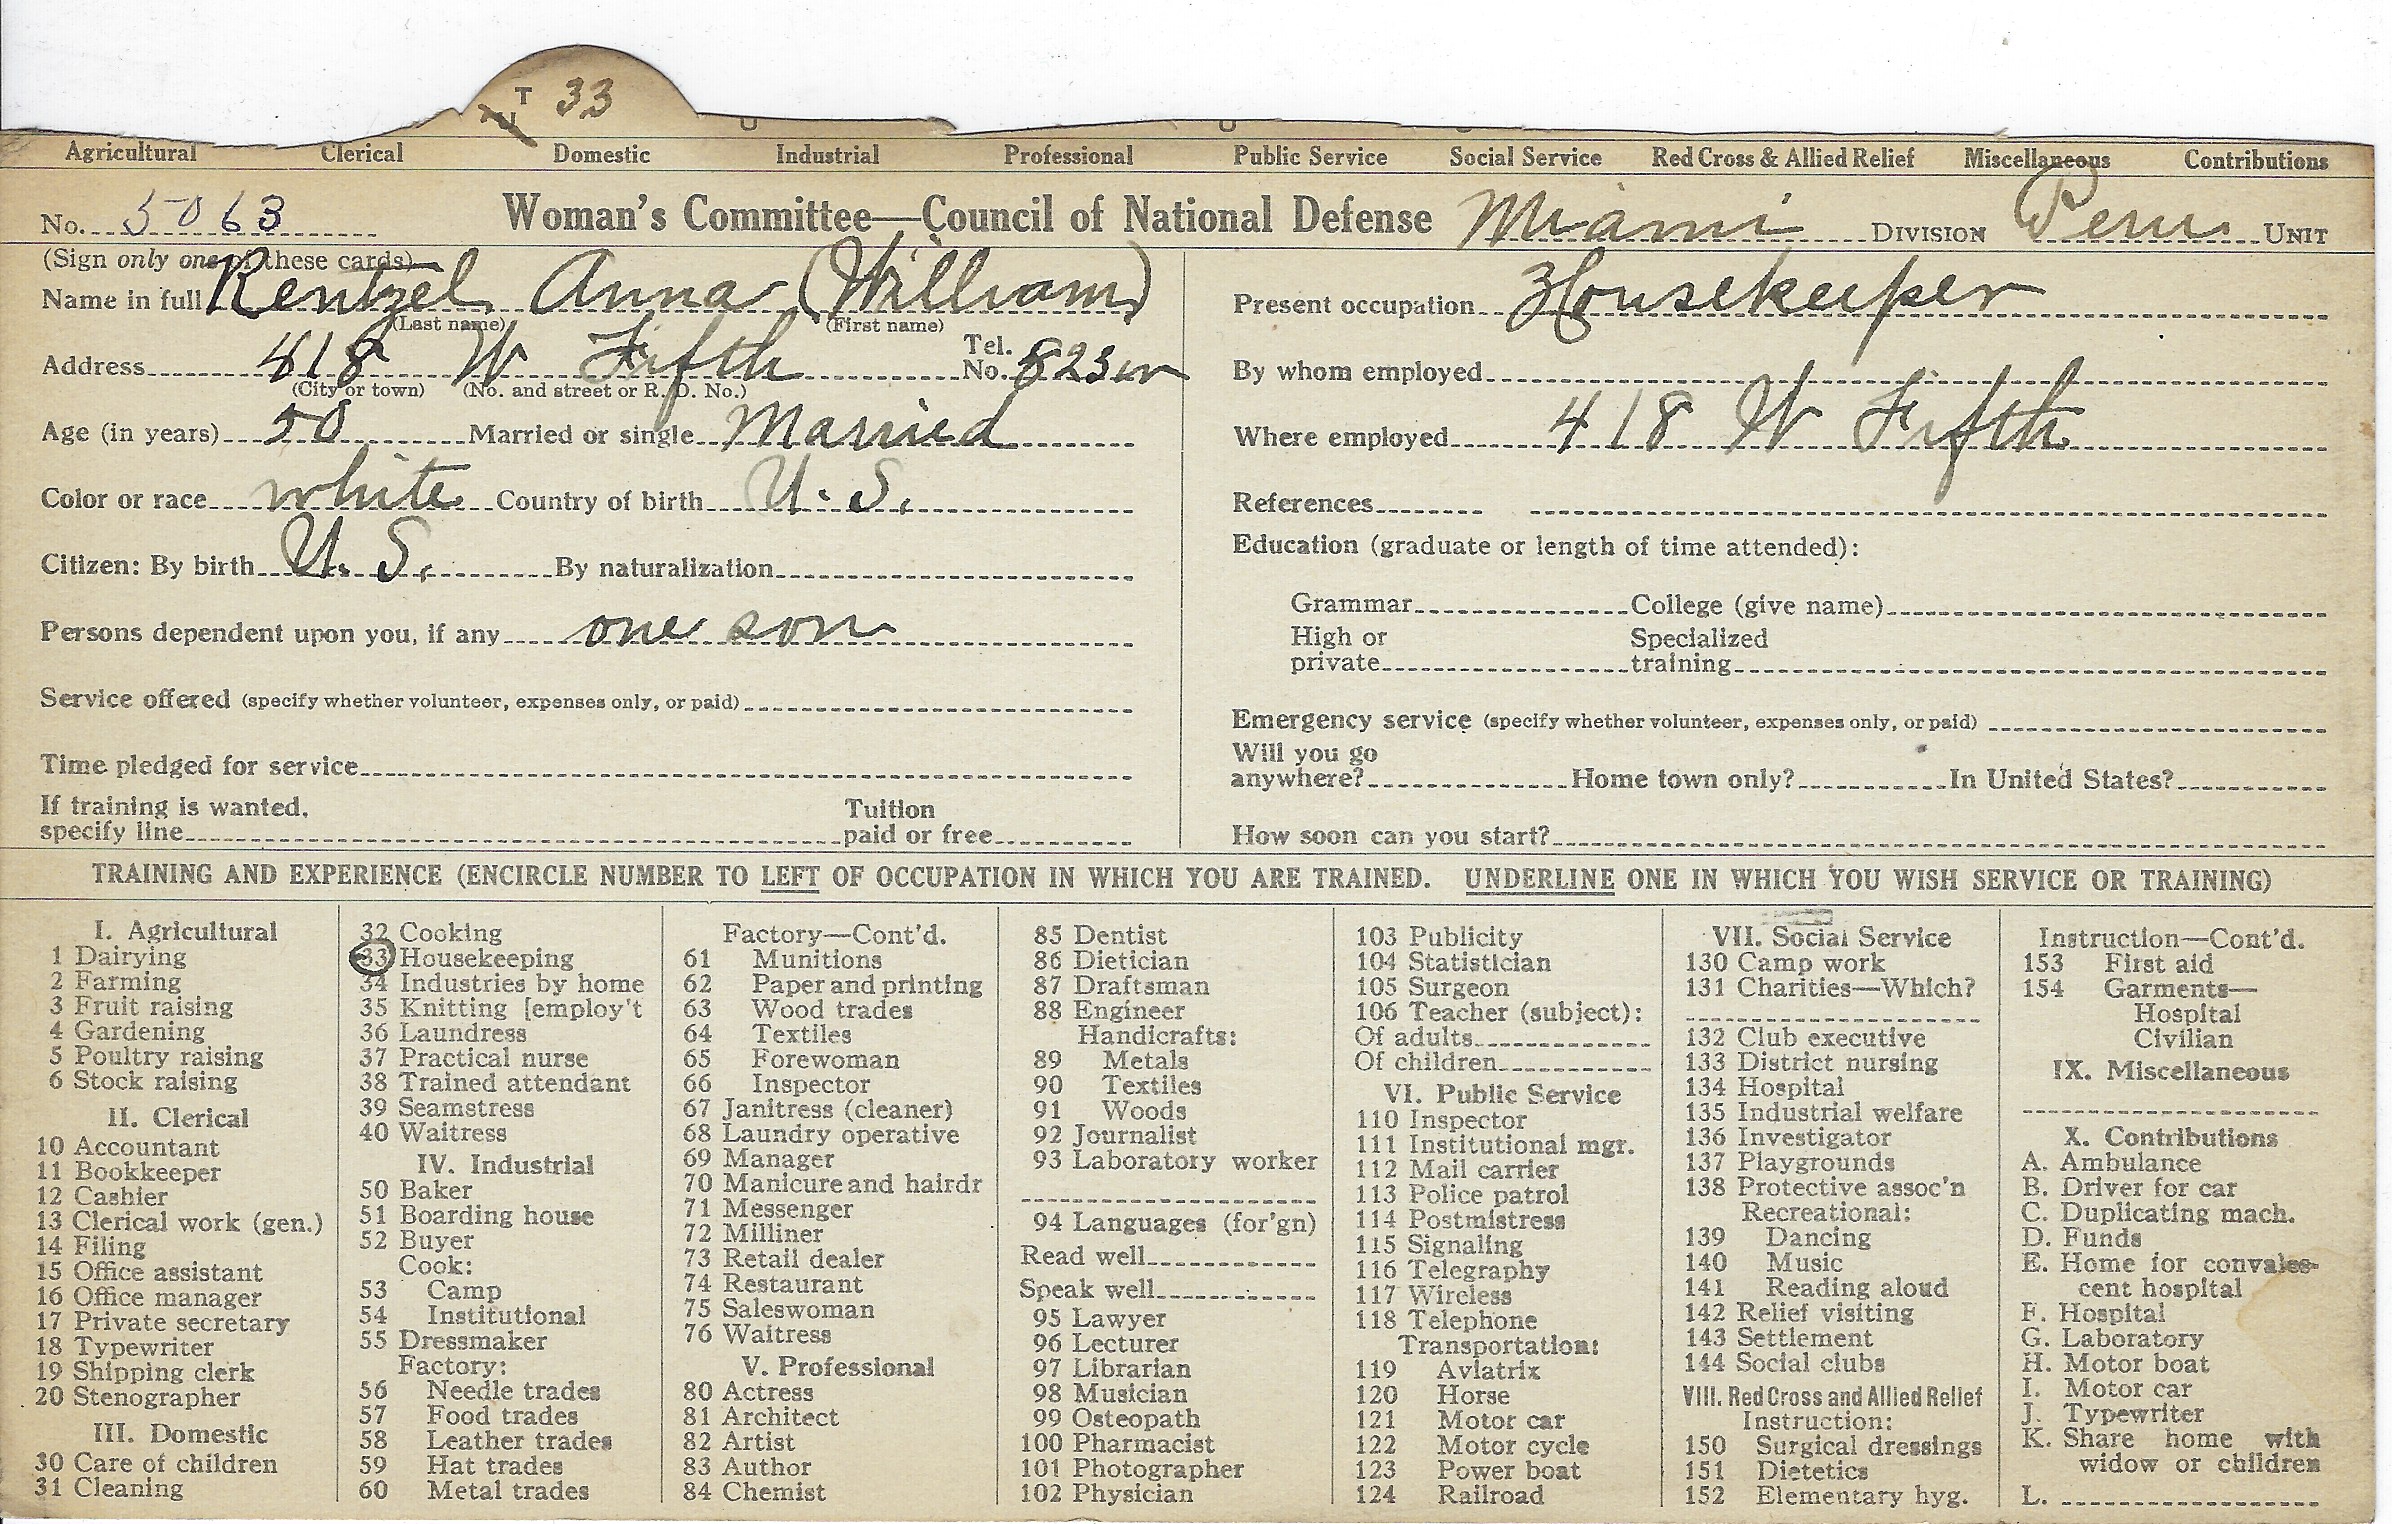 T 33
U U U U
Agricultural Clerical Domestic Industrial Professional Public Service Social Service Red Cross & Allied Relief Miscellaneous Contributions
No. 5063 Woman's Committee—Council of National Defense Miami DIVISION Peru UNIT
(Sign only one of these cards)
Name in full Rentzel Anna (William)
(Last name) (First name)
Address 418 W Fifth Tel. No. 823 W
(City or town) (No. and street or R. D. No.)
Age (in years) 50 Married or single Married
Color or race white Country of birth U. S.
Citizen: By birth U. S. By naturalization
Persons dependent upon you, if any one son
Service offered (specify whether volunteer, expenses only, or paid)
Time pledged for service
If training is wanted, specify line
Tuition paid or free
Present occupation Housekeeper
By whom employed
Where employed 418 W Fifth
References
Education (graduate or length of time attended):
Grammar College (give name)
High or private Specialized training
Emergency service (specify whether volunteer, expenses only, or paid)
Will you go anywhere? Home town only? In United States?
How soon can you start?
TRAINING AND EXPERIENCE (ENCIRCLE NUMBER TO LEFT OF OCCUPATION IN WHICH YOU ARE TRAINED. UNDERLINE ONE IN WHICH YOU WISH SERVICE OR TRAINING)
I. Agricultural
1 Dairying
2 Farming
3 Fruit raising
4 Gardening
5 Poultry raising
6 Stock raising
II. Clerical
10 Accountant
11 Bookkeeper
12 Cashier
13 Clerical work (gen.)
14 Filing
15 Office assistant
16 Office manager
17 Private secretary
18 Typewriter
19 Shipping clerk
20 Stenographer
III. Domestic
30 Care of children
31 Cleaning
32 Cooking
33 Housekeeping
34 Industries by home
35 Knitting [employ't
36 Laundress
37 Practical nurse
38 Trained attendant
39 Seamstress
40 Waitress
IV. Industrial
50 Baker
51 Boarding house
52 Buyer
Cook:
53 Camp
54 Institutional
55 Dressmaker
Factory:
56 Needle trades
57 Food trades
58 Leather trades
59 Hat trades
60 Metal trades
Factory—Cont'd.
61 Munitions
62 Paper and printing
63 Wood trades
64 Textiles
65 Forewoman
66 Inspector
67 Janitress (cleaner)
68 Laundry operative
69 Manager
70 Manicure and hairdr
71 Messenger
72 Milliner
73 Retail dealer
74 Restaurant
75 Saleswoman
76 Waitress
V. Professional
80 Actress
81 Architect
82 Artist
83 Author
84 Chemist
85 Dentist
86 Dietician
87 Draftsman
88 Engineer
Handicrafts:
89 Metals
90 Textiles
91 Woods
92 Journalist
93 Laboratory worker
94 Languages (for'gn)
Read well
Speak well
95 Lawyer
96 Lecturer
97 Librarian
98 Musician
99 Osteopath
100 Pharmacist
101 Photographer
102 Physician
103 Publicity
104 Statistician
105 Surgeon
106 Teacher (subject):
Of adults
Of children
VI. Public Service
110 Inspector
111 Institutional mgr.
112 Mail carrier
113 Police patrol
114 Postmistress
115 Signaling
116 Telegraphy
117 Wireless
118 Telephone
Transportation:
119 Aviatrix
120 Horse
121 Motor car
122 Motor cycle
123 Power boat
124 Railroad
VII. Social Service
130 Camp work
131 Charities—Which?
132 Club executive
133 District nursing
134 Hospital
135 Industrial welfare
136 Investigator
137 Playgrounds
138 Protective assoc'n
Recreational:
139 Dancing
140 Music
141 Reading aloud
142 Relief visiting
143 Settlement
144 Social clubs
VIII. Red Cross and Allied Relief
Instruction:
150 Surgical dressings
151 Dietetics
152 Elementary hyg.
Instruction—Cont'd.
153 First aid
154 Garments—
Hospital
Civilian
IX. Miscellaneous
X. Contributions
A. Ambulance
B. Driver for car
C. Duplicating mach.
D. Funds
E. Home for convales-
cent hospital
F. Hospital
G. Laboratory
H. Motor boat
I. Motor car
J. Typewriter
K. Share home with
widow or children
L.